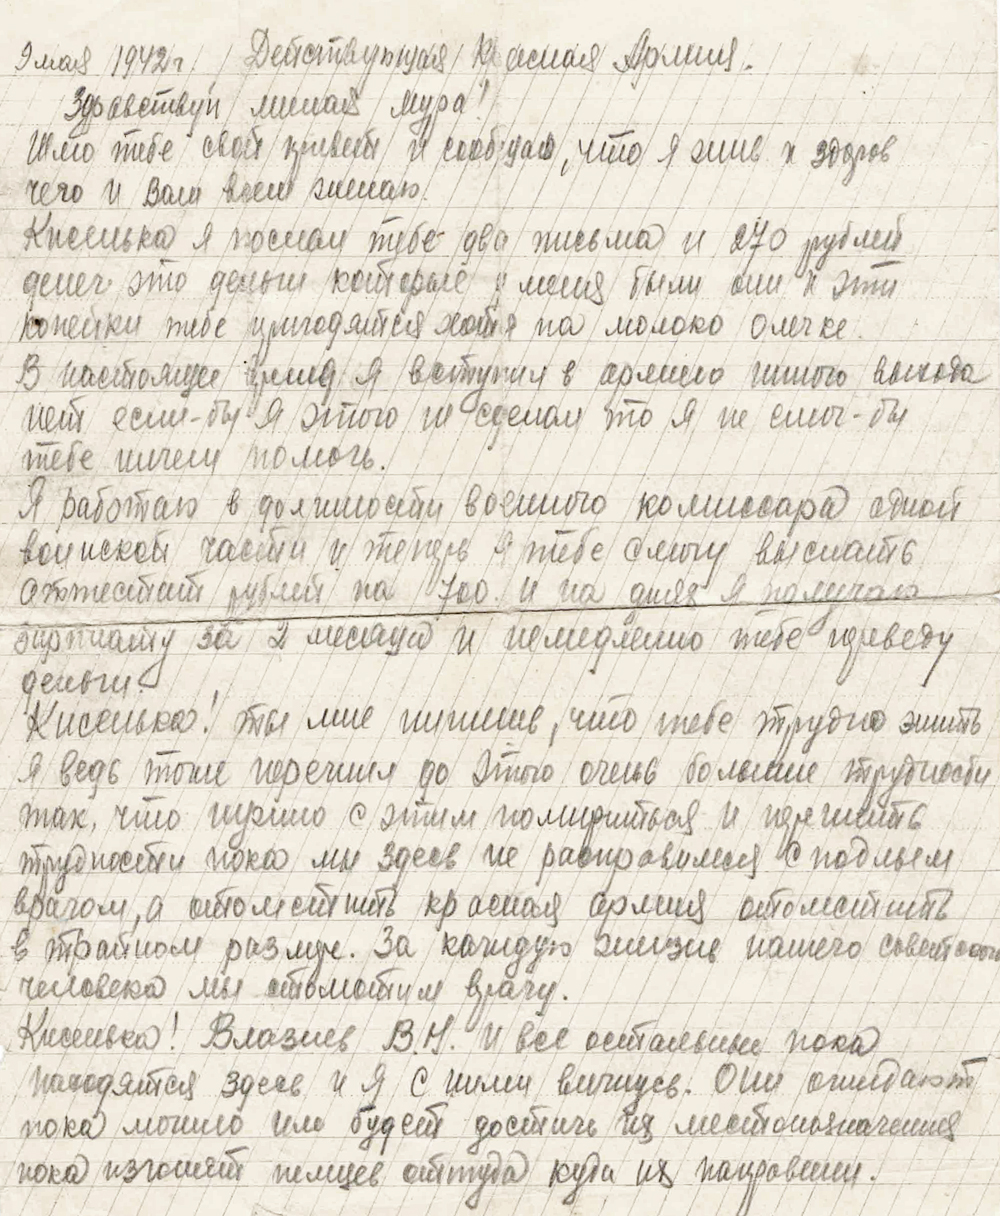 9 мая 1942 г. Действующая Красная Армия.
Здравствуй милая Мура!
Шлю тебе свой привет и сообщаю, что я жив и здоров
чего и Вам всем желаю.
Кисенька я послал тебе два письма и 270 рублей
денег это деньги которые у меня были они и эти
копейки тебе пригодятся хотя на молоко Олечке.
В настоящее время я вступил в армию иного выхода
нет если-бы я этого не сделал то я не смог-бы
тебе ничем помочь.
Я работаю в должности военного комиссара одной
воинской части и теперь я тебе смогу выслать
аттестат рублей на 700. и на днях я получаю
зарплату за 2 месяца и немедленно тебе переведу
деньги.
Кисенька! ты мне пишешь, что тебе трудно жить
я ведь тоже пережил до этого очень большие трудности
так, что нужно с этим помириться и пережить
трудности пока мы здесь не расправимся с подлым
врагом, а отомстить красная армия отомстить
в тройном размере. За каждую жизнь нашего советского
человека мы отомстим врагу.
Кисенька! В.Н. и все остальные пока
находятся здесь и я с ними вижусь. Они ожидают
пока можно им будет достичь их местоназначения
пока изгонят немцев оттуда куда их направили.